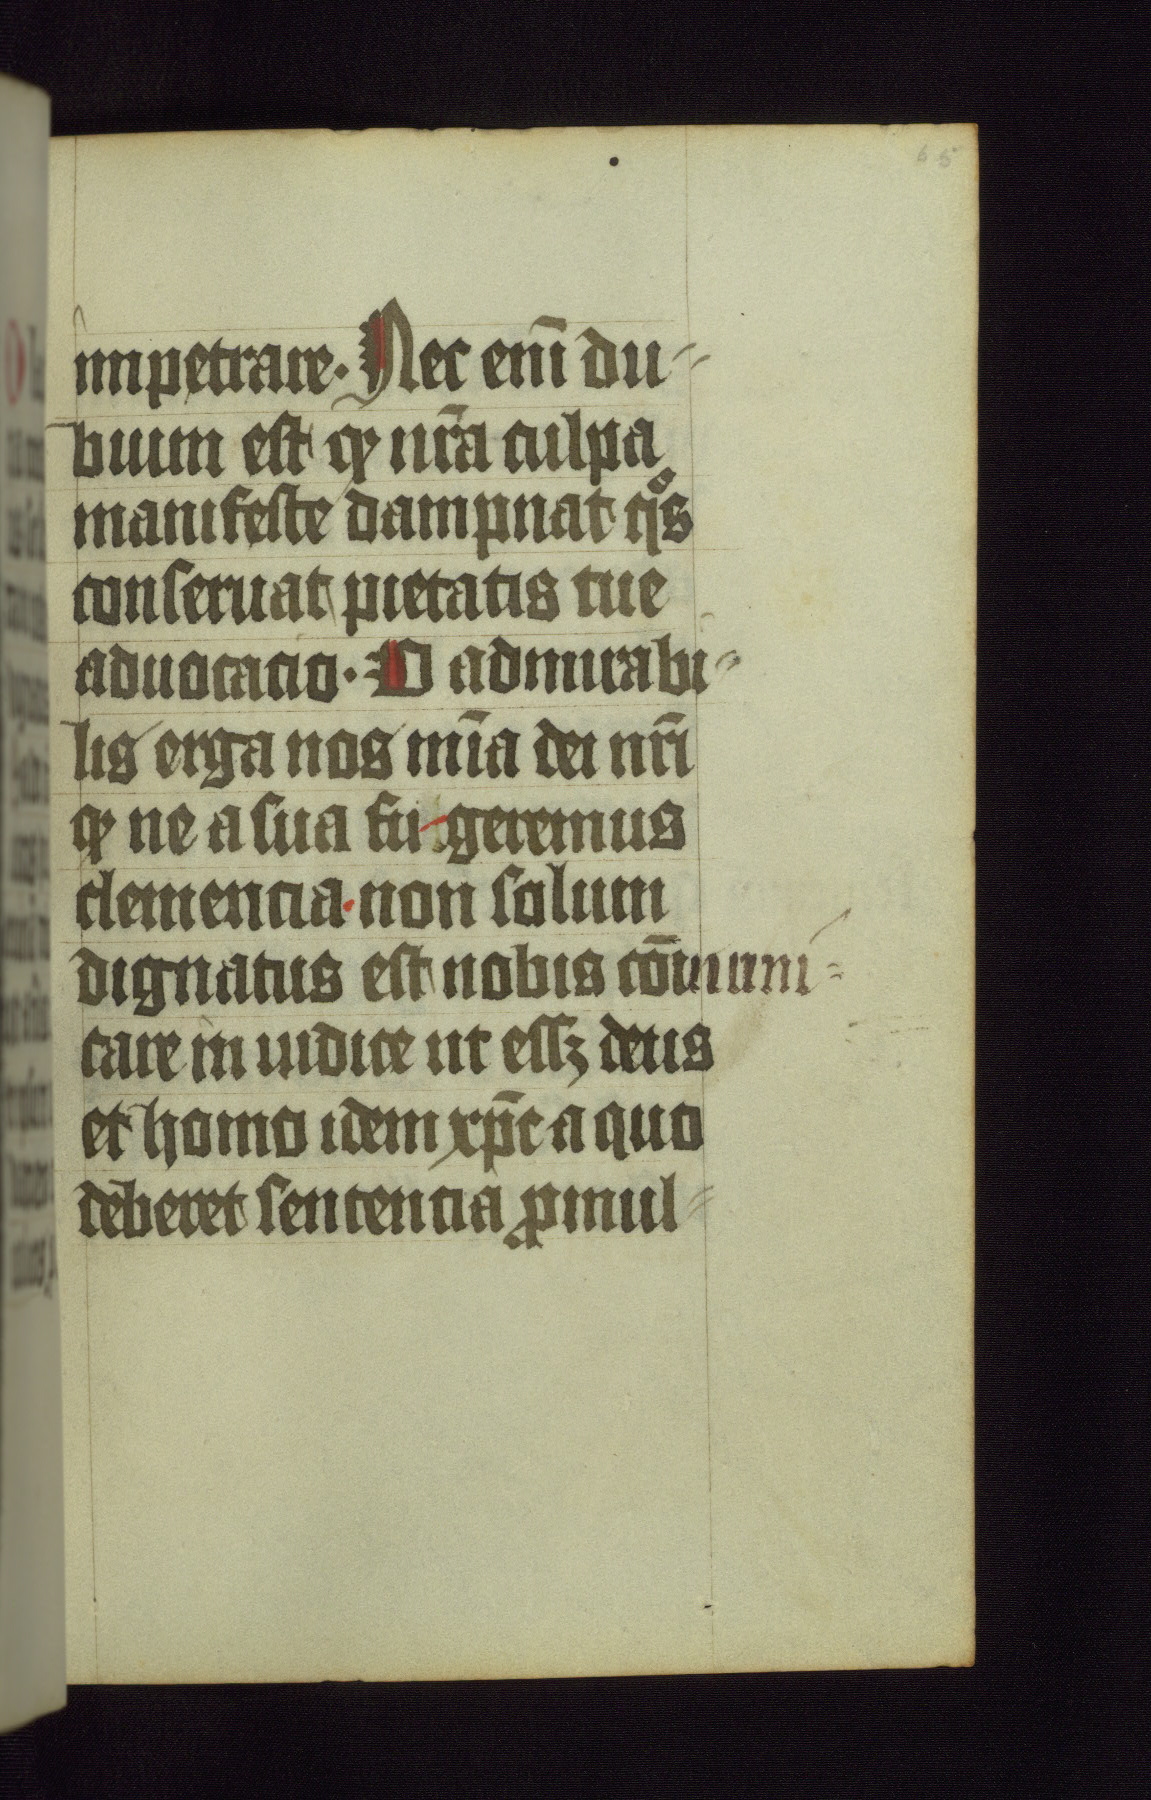 65
impetrare. Nec enī du⸗
buum est qꝫ nr̄a culpa
manifeste dampnat qͦs
conseruat pietatis tue
aduocacio. O admirabi⸗
lis erga nos mīa dei nr̄i
qꝫ ne a sua fugeremus
clemencia non solum
dignatus est nobis cōmuni⸗
care in iudice ut essꝫ deus
et homo idem xp̄c a quo
deberet sentencia ꝓmul⸗